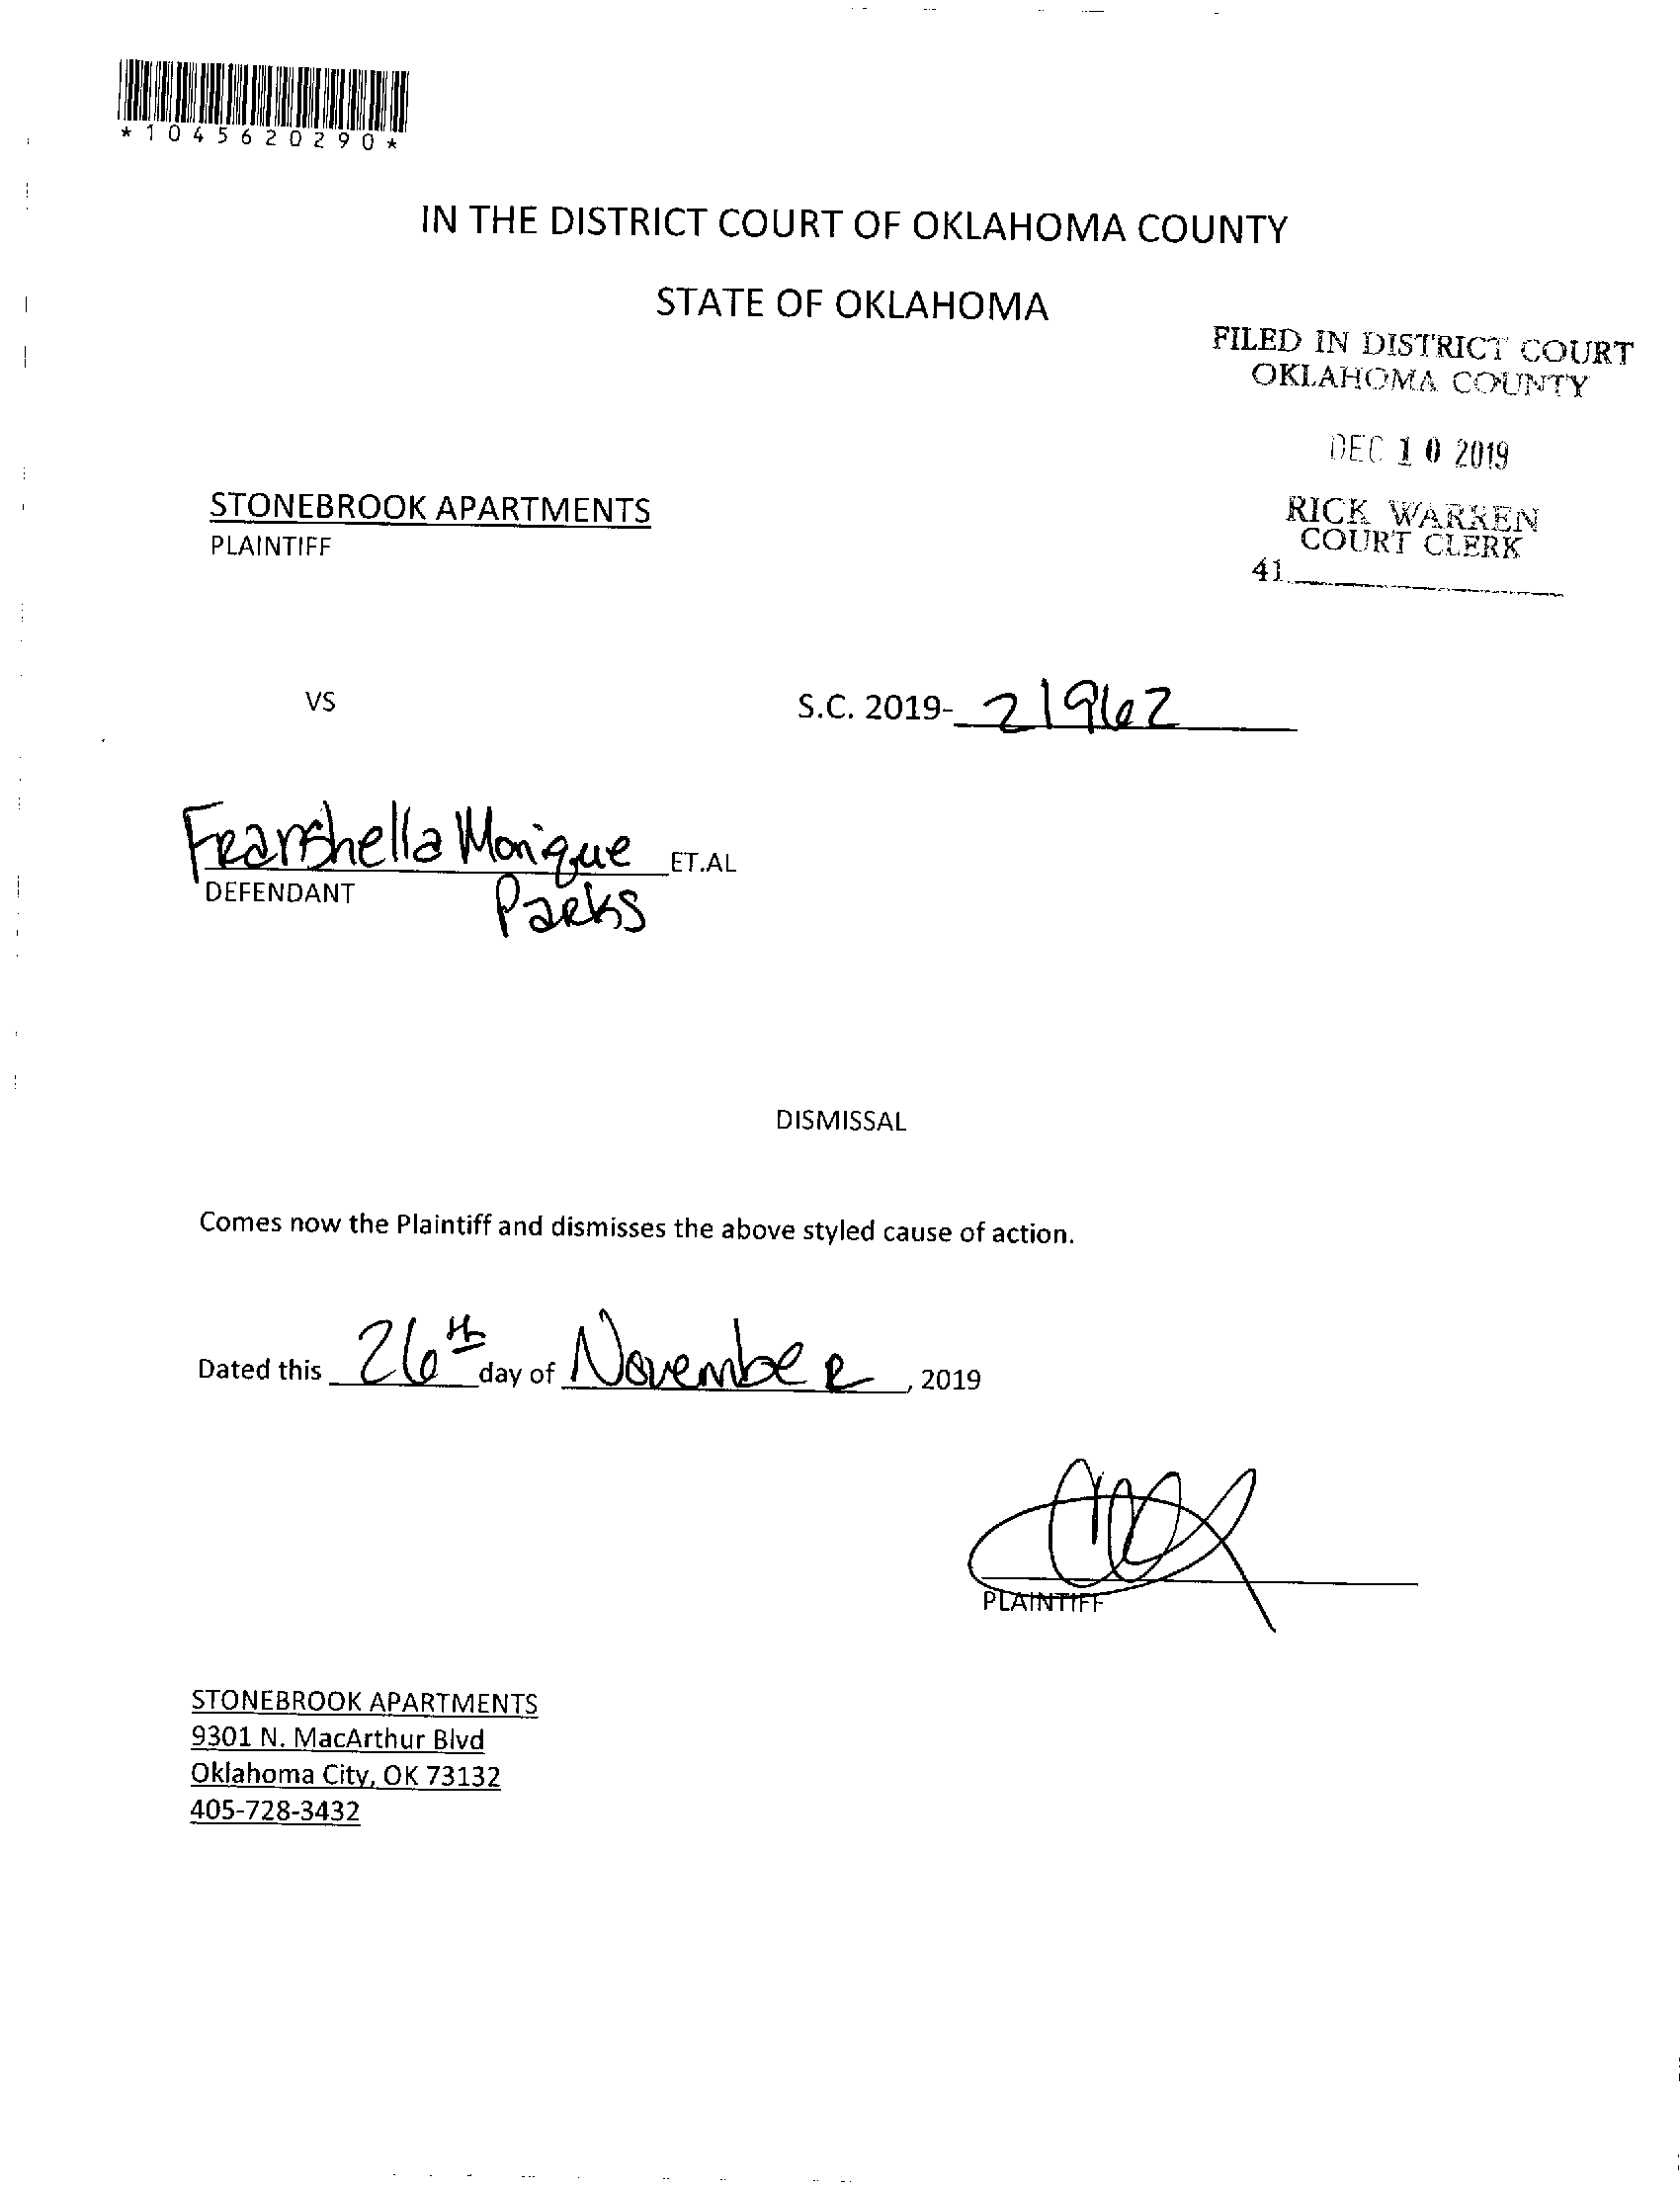 *1045620290*
IN THE DISTRICT COURT OF OKLAHOMA COUNTY
STATE OF OKLAHOMA
FILED IN DISTRICT COURT
OKLAHOMA COUNTY
DEC 10 2019
RICK WARREN
COURT CLERK
41
STONEBROOK APARTMENTS
PLAINTIFF
VS
S.C. 2019- 21962
Monique ET.AL
DEFENDANT
Parks
DISMISSAL
Comes now the Plaintiff and dismisses the above styled cause of action.
Dated this 26th day of November, 2019
PLAINTIFF
STONEBROOK APARTMENTS
9301 N. MacArthur Blvd
Oklahoma City, OK 73132
405-728-3432